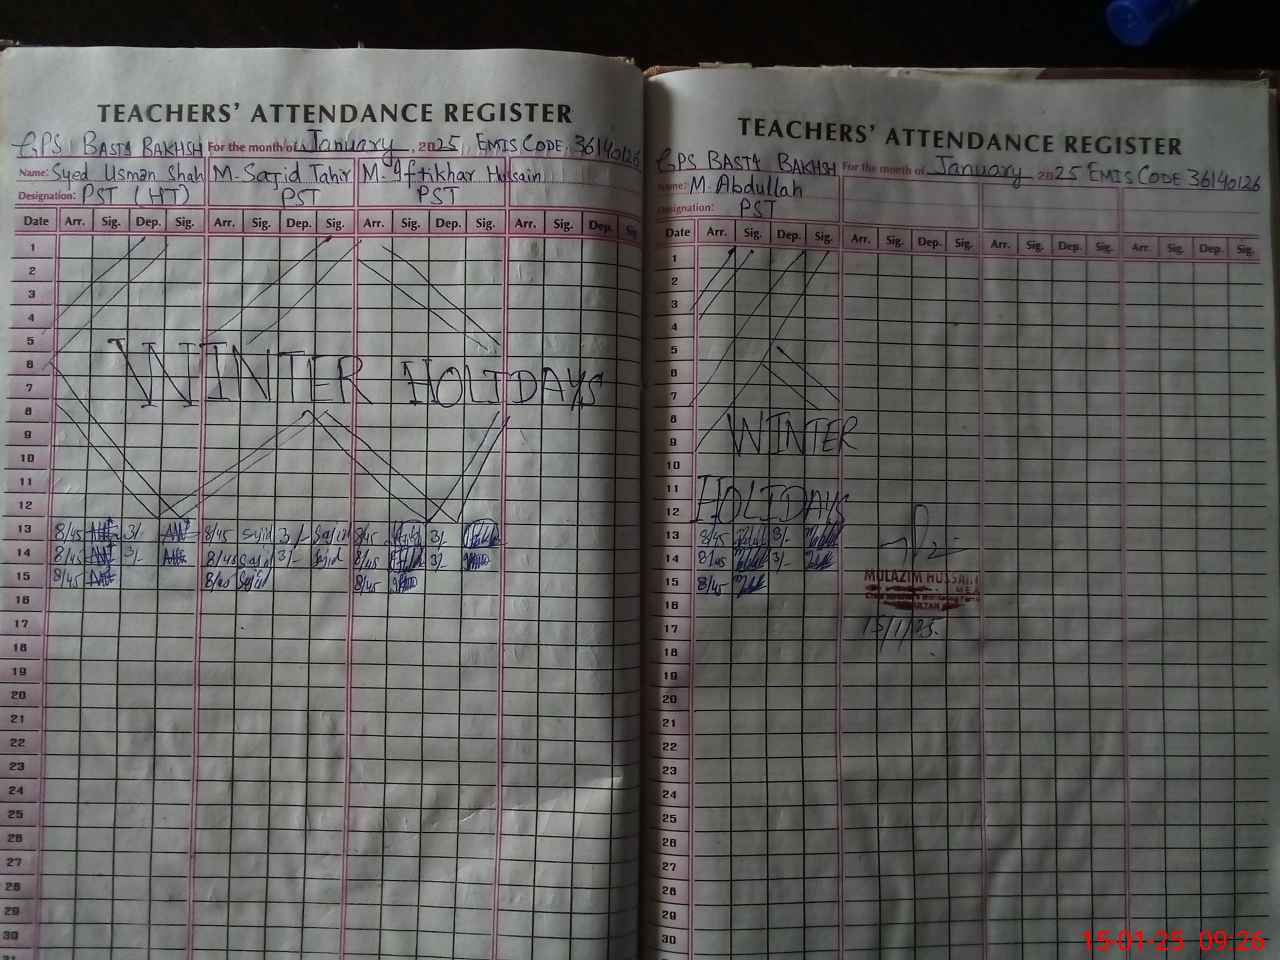 TEACHERS' ATTENDANCE REGISTER
GPS BASTA BAKHSH For the month of January 2025 EMIS CODE 36140126
Name: Syed Usman Shah M. Sajid Tahir M. Iftikhar Hussain
Designation: PST (HT) PST PST
Date Arr. Sig. Dep. Sig. Arr. Sig. Dep. Sig. Arr. Sig. Dep. Sig. Arr. Sig. Dep. Sig.
1
2
3
4
5
6
7
WINTER HOLIDAYS
8
9
10
11
12
13 8/45 3/- 8/45 Sajid 3/- Sajid 8/45 3/-
14 8/45 3/- 8/45 Sajid 3/- Sajid 8/45 3/-
15 8/45 8/45 Sajid 8/45
16
17
18
19
20
21
22
23
24
25
26
27
28
29
30
31
TEACHERS' ATTENDANCE REGISTER
GPS BASTA BAKHSH For the month of January 2025 EMIS CODE 36140126
Name: M. Abdullah
Designation: PST
Date Arr. Sig. Dep. Sig. Arr. Sig. Dep. Sig. Arr. Sig. Dep. Sig. Arr. Sig. Dep. Sig.
1
2
3
4
5
6
7
8
WINTER
9
10
11
HOLIDAYS
12
13 8/45 3/-
14 8/45 3/-
15 8/45
MULAZIM HUSSAIN
16
17 15/1/25.
18
19
20
21
22
23
24
25
26
27
28
29
30
15-01-25 09:26